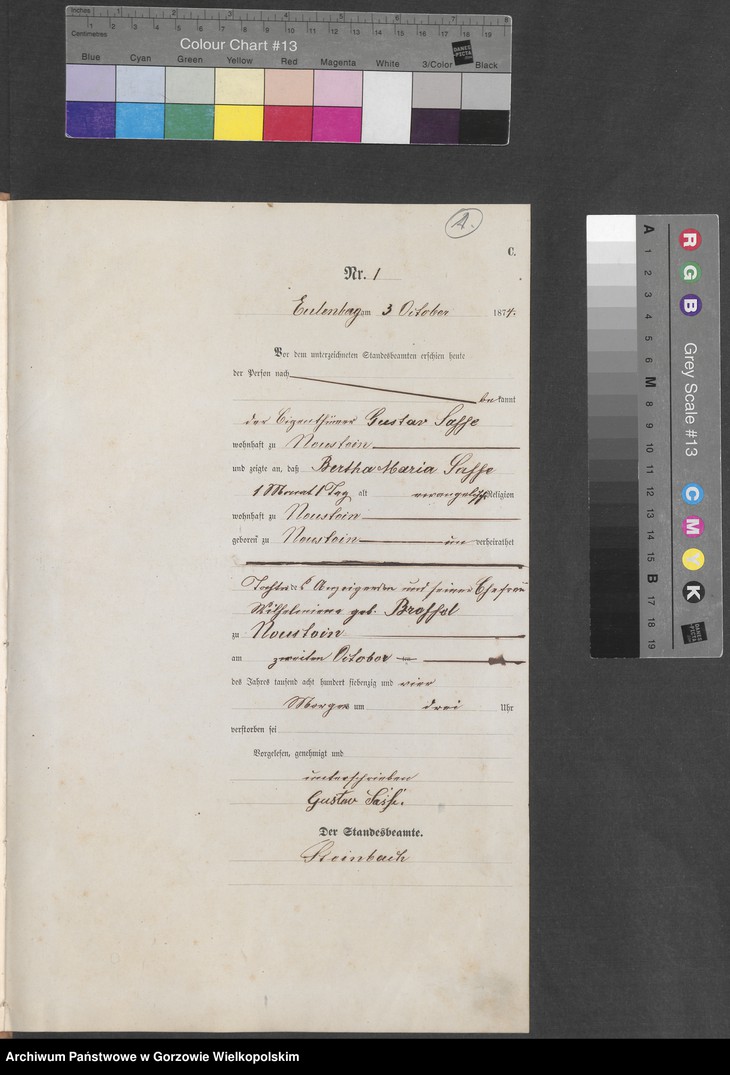 Inches 1 2 3 4 5 6 7 8
Centimetres 1 2 3 4 5 6 7 8 9 10 11 12 13 14 15 16 17 18 19
Colour Chart #13
DANES-PICTA
Blue Cyan Green Yellow Red Magenta White 3/Color Black
A.
C.
Nr. 1
am 3 October 1874.
Vor dem unterzeichneten Standesbeamten erschien heute
der Person nach
be kannt
der Eigenthümer Gustav Sasse
wohnhaft zu Neustein
und zeigte an, daß Bertha Maria Sasse
1 Monat 1 Tag alt evangelisch Religion
wohnhaft zu Neustein
geboren zu Neustein un verheirathet
Tochter des Anzeigenden und seiner Ehefrau
geb.
zu Neustein
am zweiten October
des Jahres tausend acht hundert siebenzig und vier
Morgens um drei Uhr
verstorben sei
Vorgelesen, genehmigt und
unterschrieben
Gustav Sasse.
Der Standesbeamte.
Steinbach
R G B
Grey Scale #13
C M Y K
A 1 2 3 4 5 6 M 8 9 10 11 12 13 14 15 B 17 18 19
Archiwum Państwowe w Gorzowie Wielkopolskim